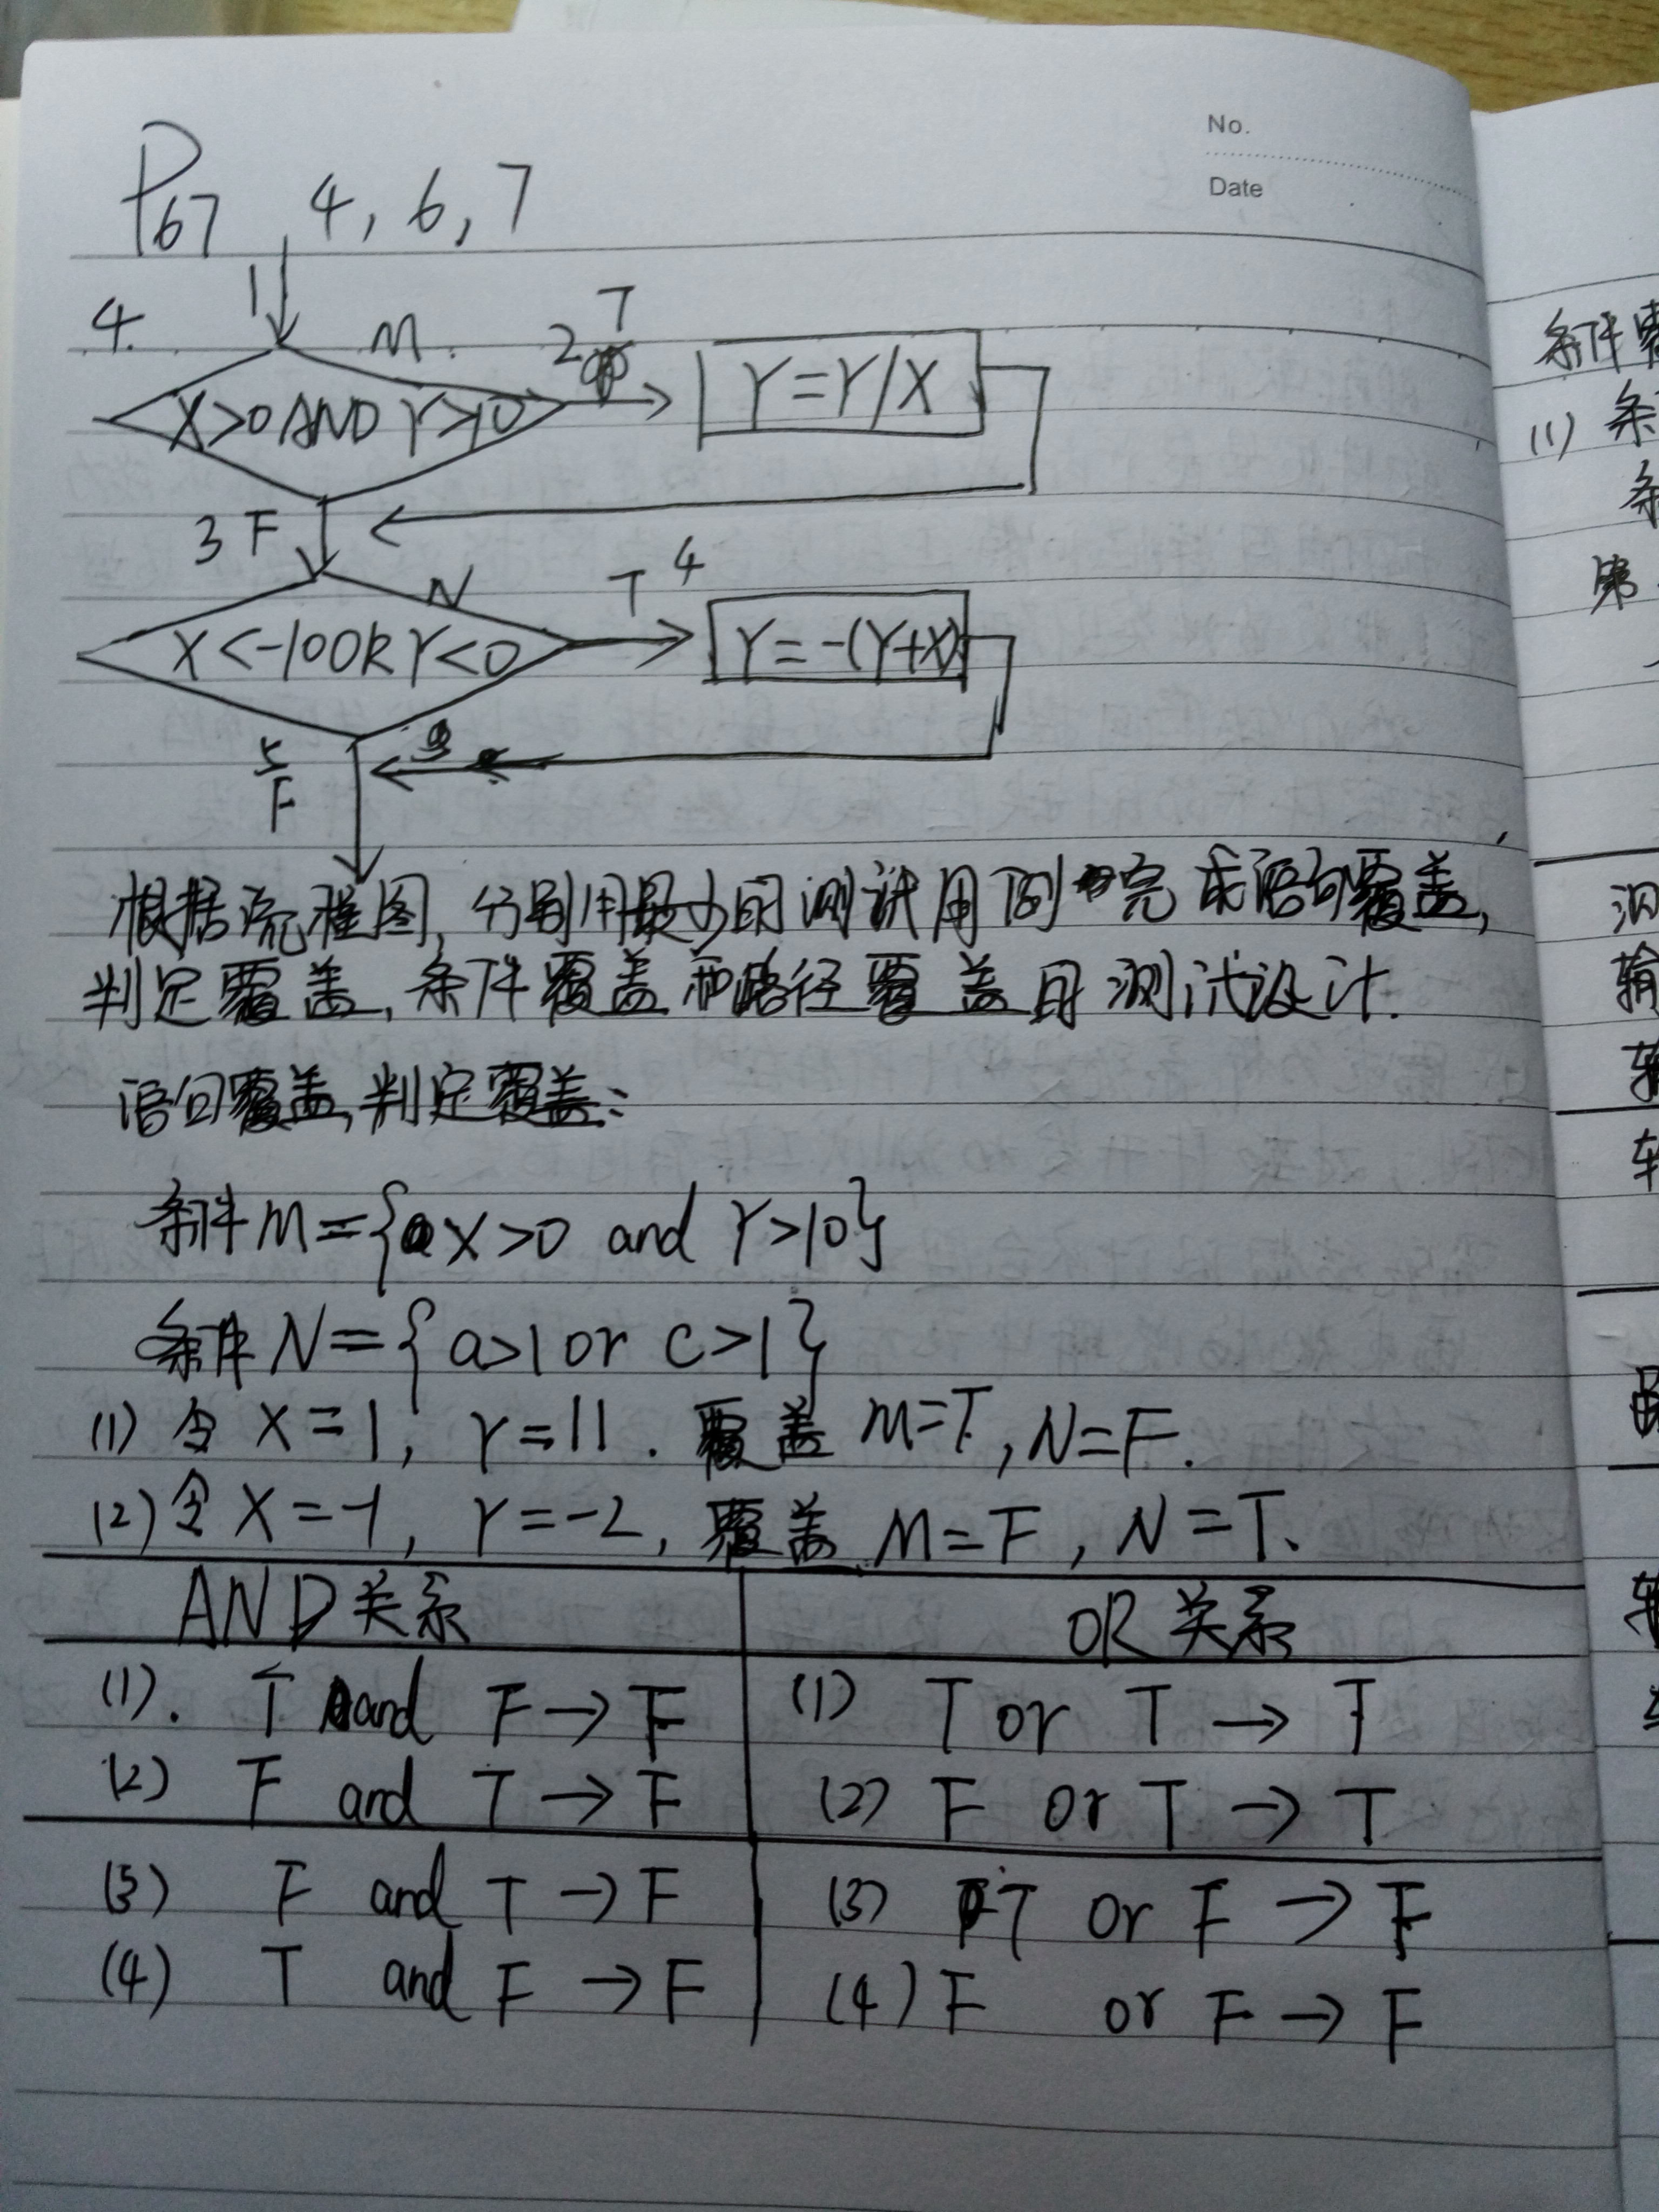 No.
Date
P67 4, 6, 7
4. 1 M. 2 T
X>0 AND Y>10
Y=Y/X
3 F
N T 4
X<-10 OR Y<0
Y=-(Y+X)
5
F
根据流程图,分别用最少的测试用例完成语句覆盖,
判定覆盖,条件覆盖和路径覆盖的测试设计.
语句覆盖,判定覆盖:
条件M={X>0 and Y>10}
条件N={a>1 or c>1}
(1) 令 X=1, Y=11. 覆盖 M=T, N=F.
(2) 令 X=-1, Y=-2, 覆盖 M=F, N=T.
AND关系 OR关系
(1). T and F→F (1) T or T→T
(2) F and T→F (2) F or T→T
(3) F and T→F (3) T or F→F
(4) T and F→F (4) F or F→F
条件
(1) 条
条
第
输